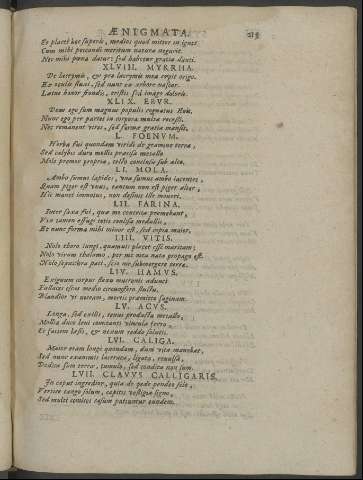 ÆNIGMATA. 215
Et placet hoc superis, medios quod mittor in ignes,
Cum mihi peccandi meritum natura negavit.
Nec mihi pœna datur: sed habetur gratia danti.
XLVIII. MYRRHA.
De lacrymis, & pro lacrymis mea cœpit origo.
Ex oculis fluxi, sed nunc ex arbore nascor.
Lætus honor frondis, tristis sed imago doloris.
XLIX. EBUR.
Dens ego sum magnus populis cognatus Eois.
Nunc ego per partes in corpora multa recessi.
Nec remanent vires, sed formæ gratia mansit.
L. FOENUM.
Herba fui quondam viridi de gramine terræ,
Sed chalybis duro mollis præcisa metallo
Mole premor propria, tecto conclusa sub alto.
LI. MOLA.
Ambo sumus lapides, una sumus ambo jacentes,
Quam piger est unus, tantum non est piger alter,
Hic manet immotus, non desinit ille moveri.
LII. FARINA.
Inter saxa fui, quæ me contrita premebant,
Vix tamen effugi totis conlisa medullis,
Et nunc forma mihi minor est, sed copia major.
LIII. VITIS.
Nolo thoro jungi, quamvis placet esse maritam:
Nolo virum thalamo, per me mea nata propago est.
Nolo sepulchra pati, scio me submergere terra.
LIV. HAMUS.
Exiguum corpus flexu mucronis adunci
Fallaces escas medio circumfero fluctu.
Blandior ut noceam, mortis præmitto saginam.
LV. ACUS.
Longa, sed exilis, tenui producta metallo,
Mollia duco levi comitanti vincula ferro,
Et faciem læsis, & nexum reddo solutis.
LVI. CALIGA.
Major eram longe quondam, dum vita manebat,
Sed nunc exanimis lacerata, ligata, revulsa,
Dedita sum terræ, tumulo, sed condita non sum.
LVII. CLAVUS CALLIGARIS.
In caput ingredior, quia de pede pendeo solo,
Vertice tango solum, capitis vestigia signo,
Sed multi comites casum patiuntur eundem.